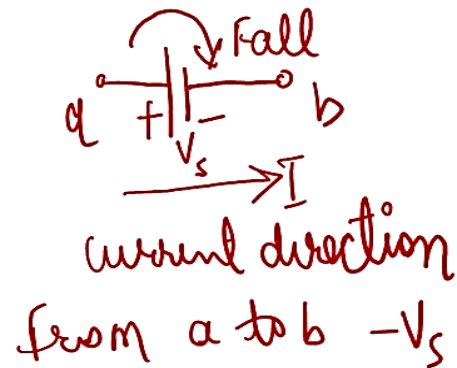 Fall
a + - b
Vs
I
current direction
from a to b -Vs